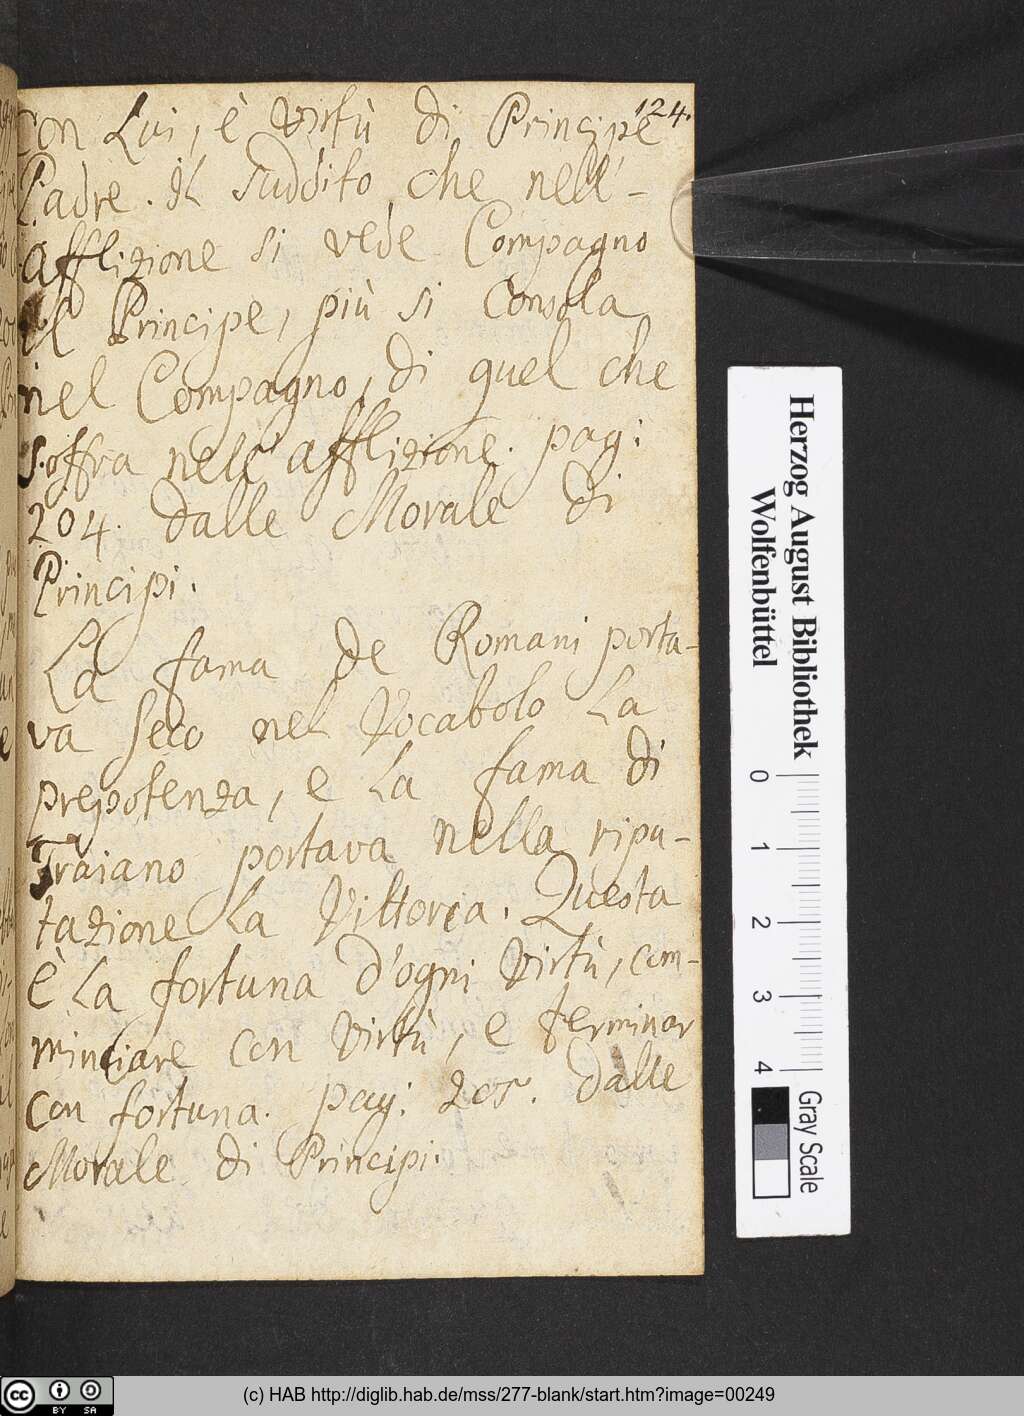 124.
Con Lui, è Virtù di Principe
Padre. Il suddito che nell'-
afflizione si vede Compagno
il Principe, più si Consola
nel Compagno, di quel che
soffra nell'afflizione. pag:
204. dalle Morale di
Principi.
La fama de Romani porta-
va seco nel Vocabolo La
prepotenza, e La fama di
Traiano portava nella ripu-
tazione La Vittoria. Questa
è La fortuna d'ogni Virtù, com-
minciare con Virtù, e terminar
con fortuna. pag: 205. dalle
Morale di Principi.
Herzog August Bibliothek
Wolfenbüttel
0 1 2 3 4
Gray Scale
cc BY SA
(c) HAB http://diglib.hab.de/mss/277-blank/start.htm?image=00249